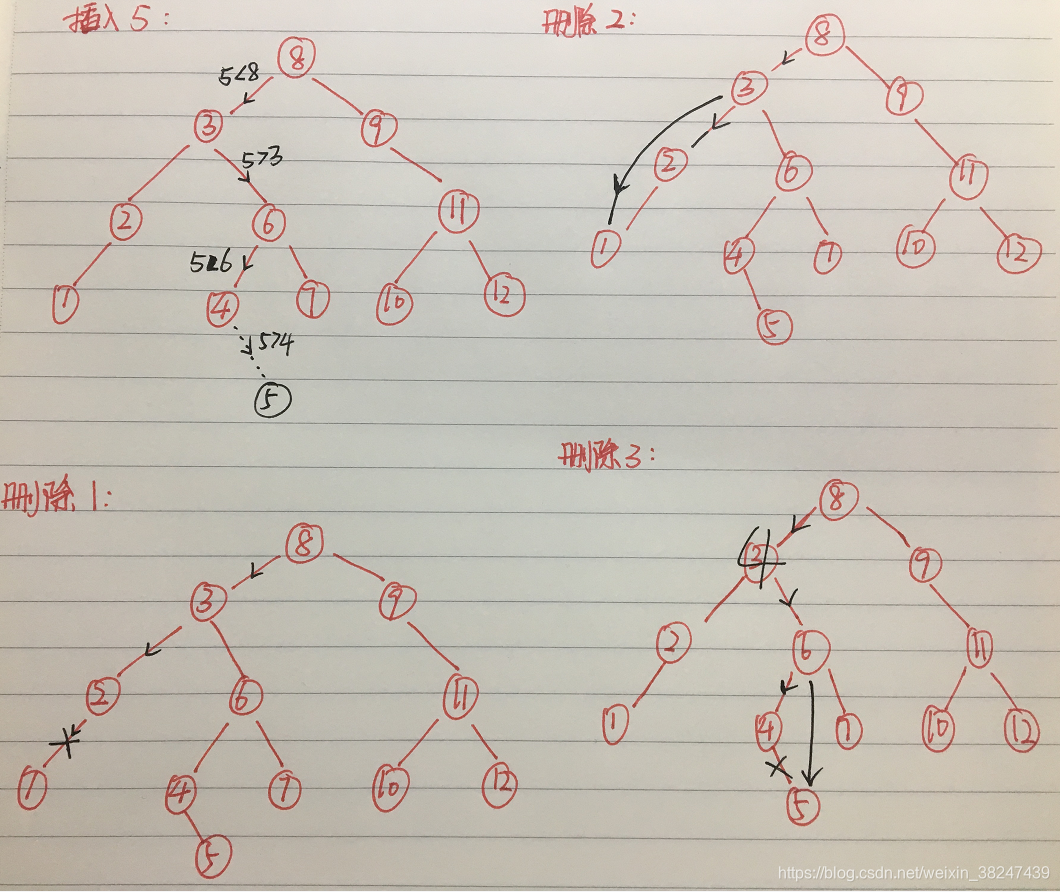 插入5:
8
5<8
3
9
5>3
2
6
11
5<6
1
4
7
10
12
5>4
5
删除2:
8
3
9
2
6
11
1
4
7
10
12
5
删除1:
8
3
9
2
6
11
1
4
7
10
12
5
删除3:
8
4
9
2
6
11
1
4
7
10
12
5
https://blog.csdn.net/weixin_38247439